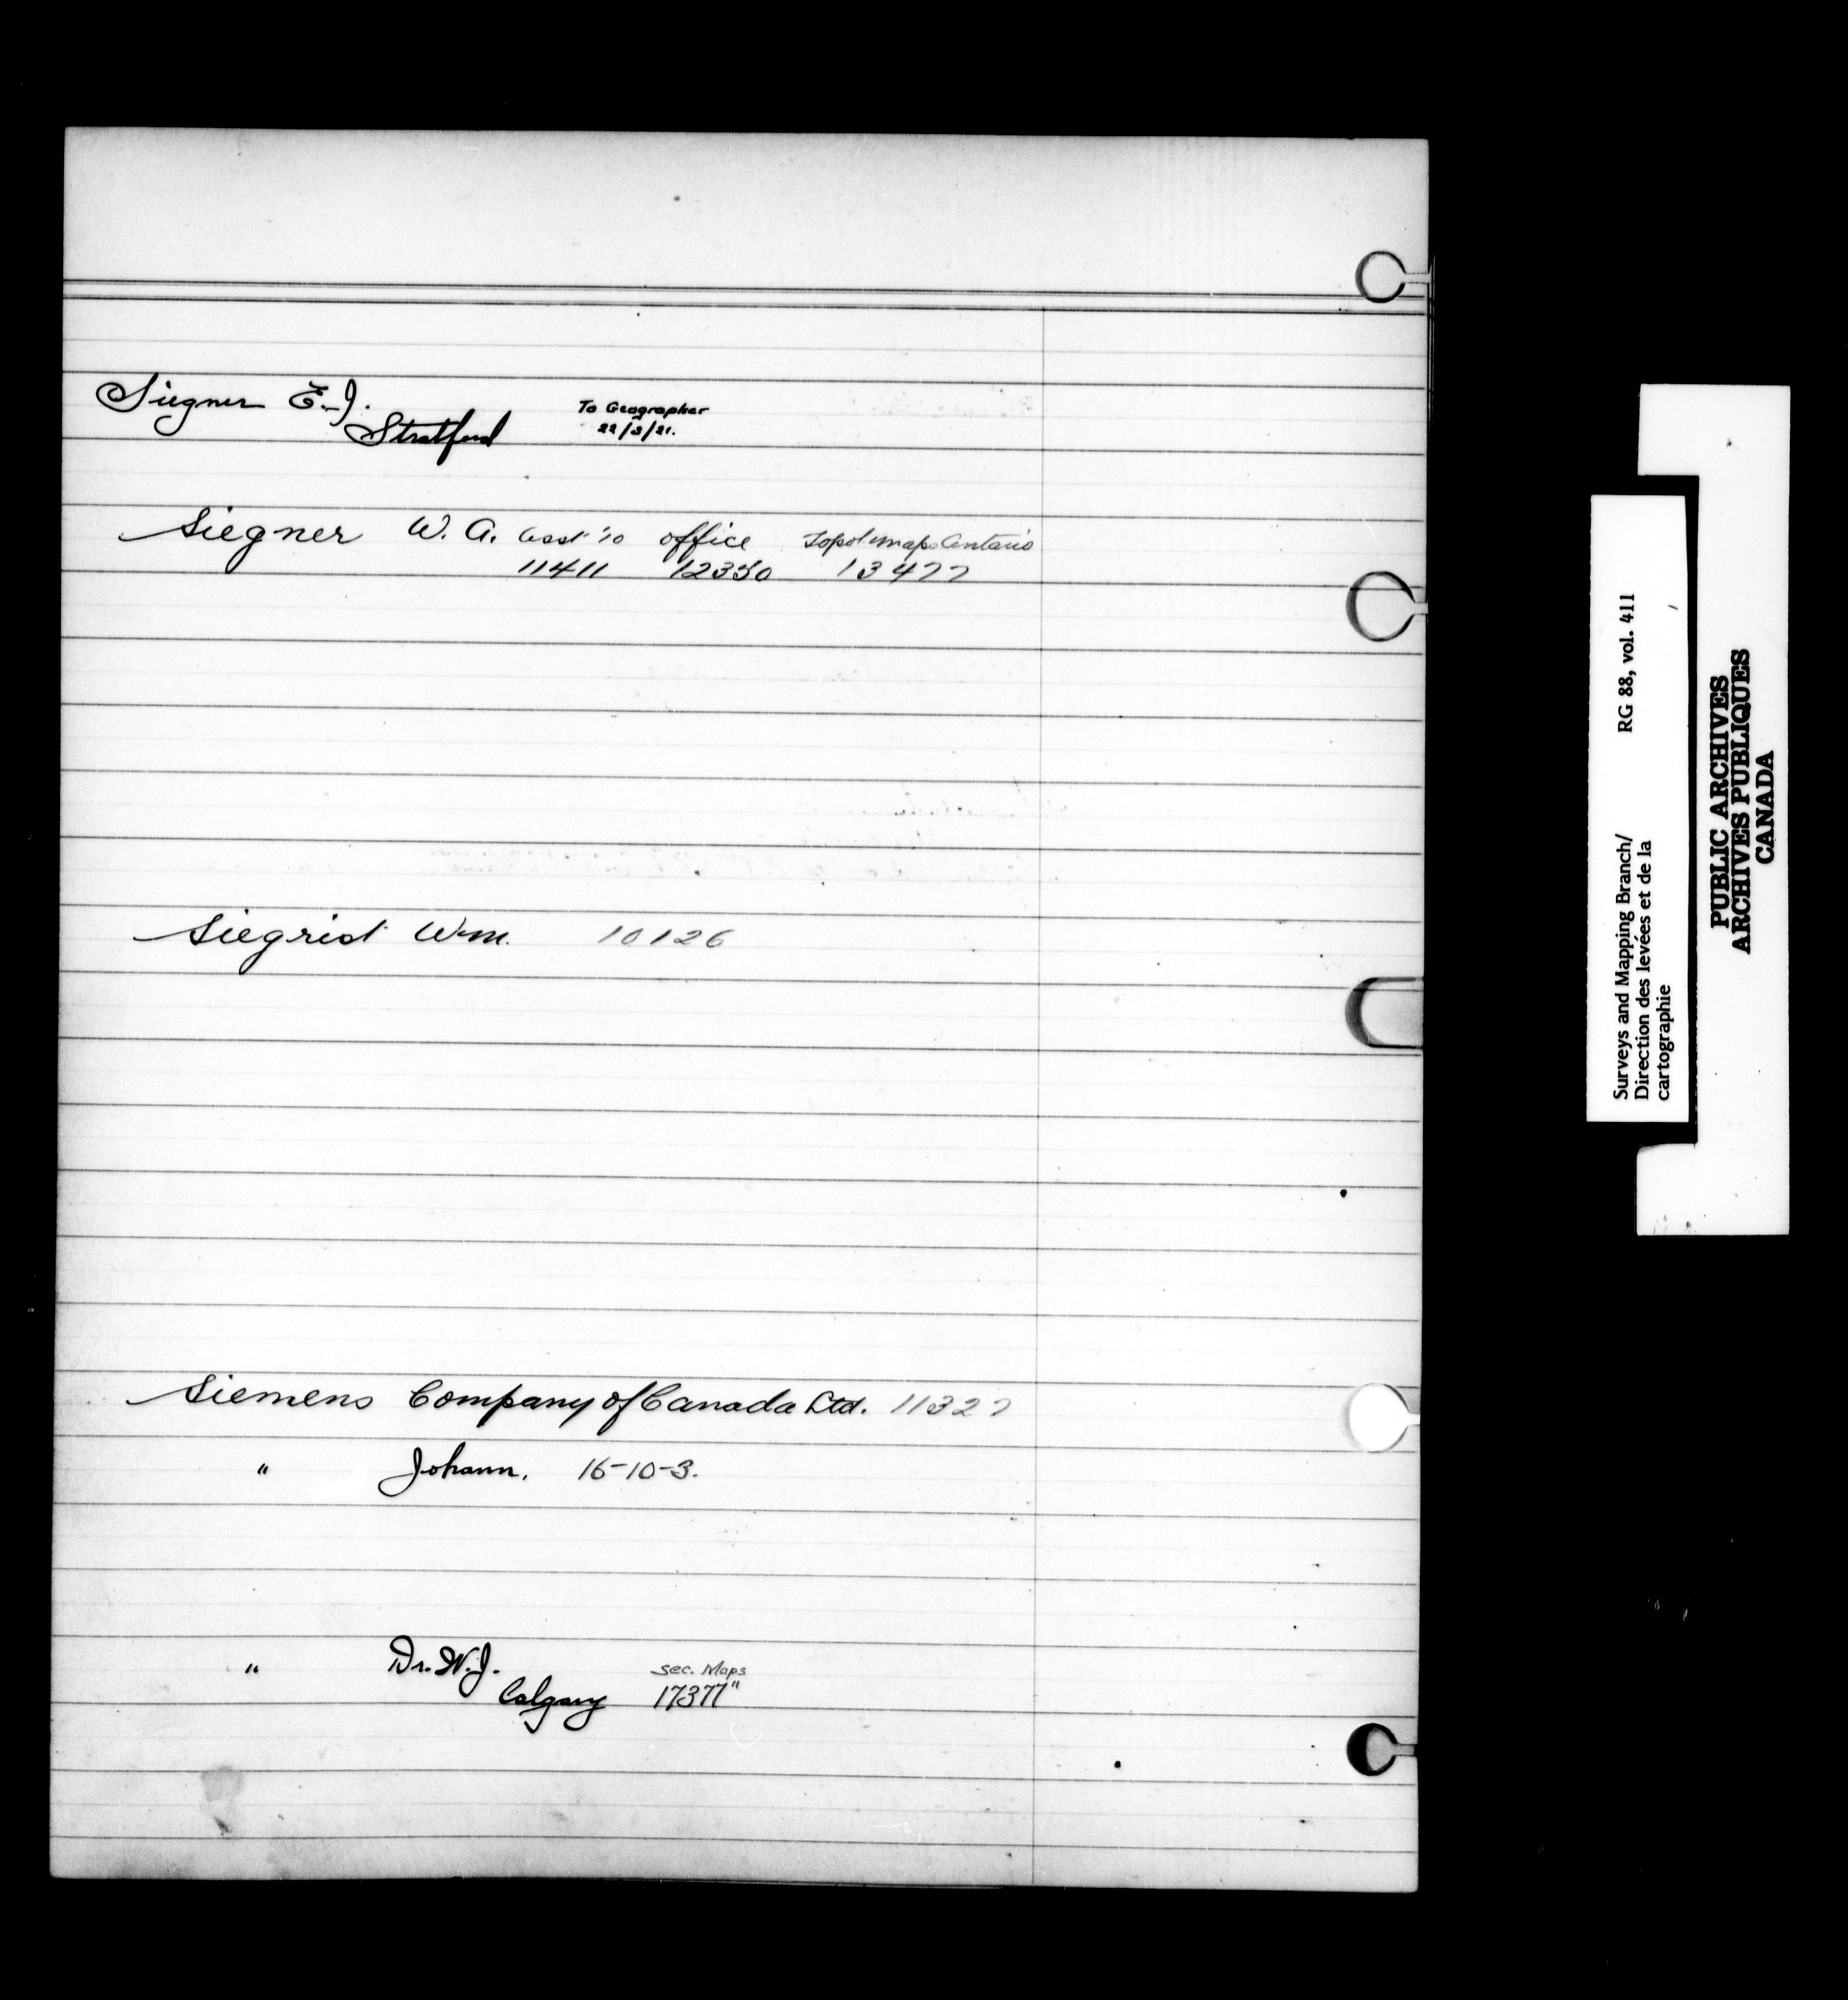 Siegner E. J.
Stratford
To Geographer
22/3/21.
Siegner W. A. Asst '10 office Topol maps Ontario
11411 12350 13477
Siegrist Wm. 10126
Siemens Company of Canada Ltd. 11327
" Johann, 16-10-3.
" Dr. W. J.
Calgary
Sec. Maps
17377"
Surveys and Mapping Branch/
Direction des levées et de la
cartographie
RG 88, vol. 411
PUBLIC ARCHIVES
ARCHIVES PUBLIQUES
CANADA